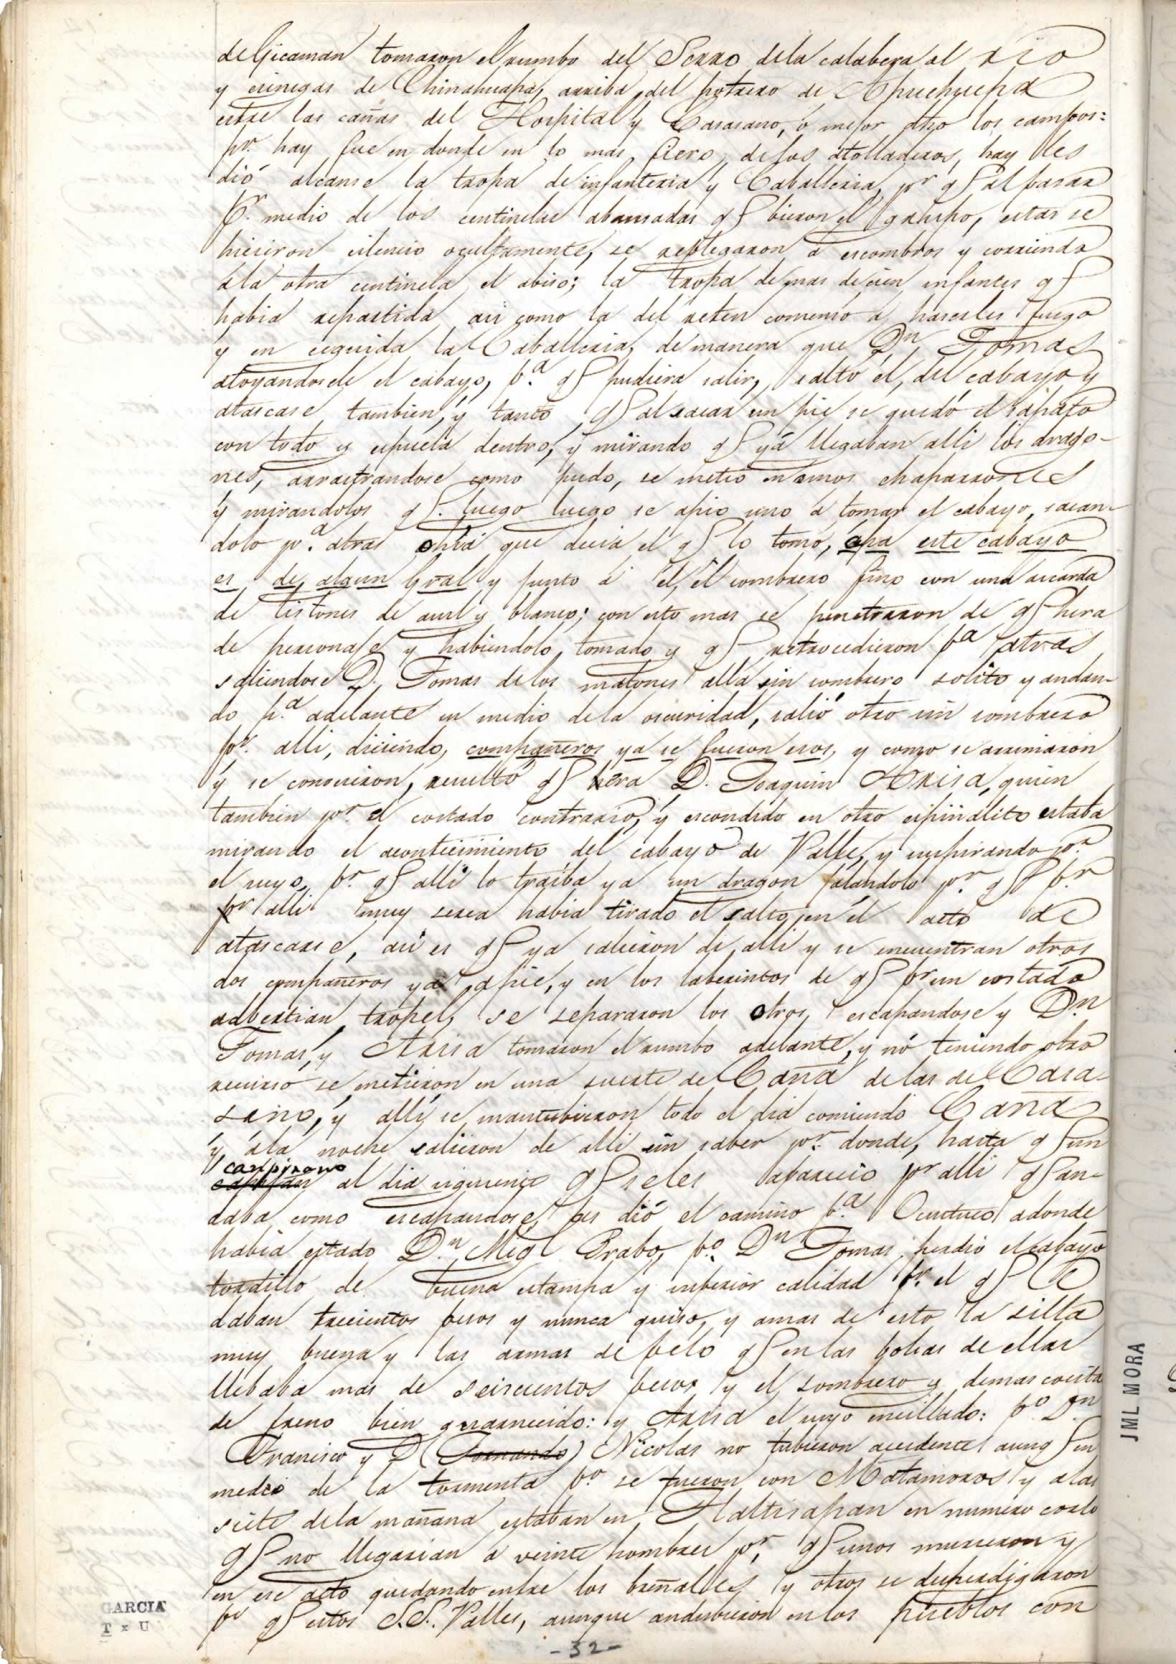 de Gicaman tomaron el rumbo del Serro dela calabera al rio
y cienegas de Chinahuapa, arriba del potrero de Apuchucpa
entre las cañas del Hospital y Casasano, ó mejor dho los campos:
pr. hay fue en donde en lo mas fiero de los atolladeros, hay les
dió alcanse la tropa de infanteria y Caballeria, pr. q al pasar
Pr. medio de los centinelas abansadas q bieron el grupo, estas se
hicieron silencio ocultamente, se replegaron á escombros y corriendo
ála otra centinela el abiso; la tropa de mas de cien infantes q
habia repartida, asi como la del reten comenso á haserles fuego
y en ceguida la Caballeria, de manera que Dn. Tomas
atoyandosele el cabayo, pa. q pudiera salir, saltó el, del cabayo y
atascase tambien, y tanto q al sacar un pie se quedó el sapato
con todo y espuela dentro, y mirando q ya llegaban alli los drago-
nes, arrastrandose como pudo, se metio en unos chaparros
y mirandolos q luego luego se apio uno á tomar el cabayo, sacan-
dolo pa. atras ohia que decia el q lo tomó, apa este cabayo
es de algun Gral y junto á el, el sombrero fino con una cucarda
de listones de asul y blanco; con esto mas se penetraron de q hera
de personage y habiendolo tomado y q retrocedieron pa. atras
saliendose D. Tomas de los matones allá sin sombrero solito y andan-
do pa. adelante en medio de la oscuridad, salió otro sin sombrero
pr. alli, diciendo, compañeros ya se fueron esos, y como se arrimaron
y se conocieron, resultó q hera D. Joaquin Arisa, quien
tambien pr. el costado contrario, y escondido en otro espinalito estaba
mirando el acontecimiento del cabayo de Valle, y suspirando pr.
el suyo, pr. q alli lo traiba ya un dragon jalandolo pr. q pr.
pr. alli muy serca habia tirado el salto en el acto de
atascarse, asi es q ya salieron de alli y se encuentran otros
dos compañeros ya apie, y en los laberintos de q pr. un costado
adbertian tropel, se separaron los otros, escapandose y Dn.
Tomas, y Arisa tomaron el rumbo adelante, y nó teniendo otro
recurso se metieron en una suerte de Caña de las de Casa-
sano, y alli se mantubieron todo el dia comiendo Caña
y ála noche salieron de alli sin saber pr. donde, hasta q un
campirano
capitan al dia siguiente q seles aparecio pr. alli q an-
daba como escapandose, les dió el camino pa. Ocuituco adonde
habia estado Dn. Migl Brabo, po. Dn. Tomas perdio el cabayo
tordillo de buena estampa y superior calidad pr. el q le
daban trecientos pesos y nunca quiso, y amas de esto la silla
muy buena y las armas de pelo q en las bolsas de ellas
llebaba mas de seiscientos pesos, y el sombrero y demas costa
de freno bien guarnecido: y Arisa el suyo ensillado: po. Dn.
Francisco y D (Fernando) Nicolas no tubieron acsidente aunq en
medio de la tormenta po. se fueron con Matamoros y alas
siete dela mañana estaban en Tlaltisapan en numero corto
q no llegarian á veinte hombres pr. q unos murieron y
en ese acto quedando entre los breñales y otros se desperdigaron
po. q estos S.S. Valles, aunque andubieron en los pueblos con
- 32 -
GARCIA
T x U
JML MORA